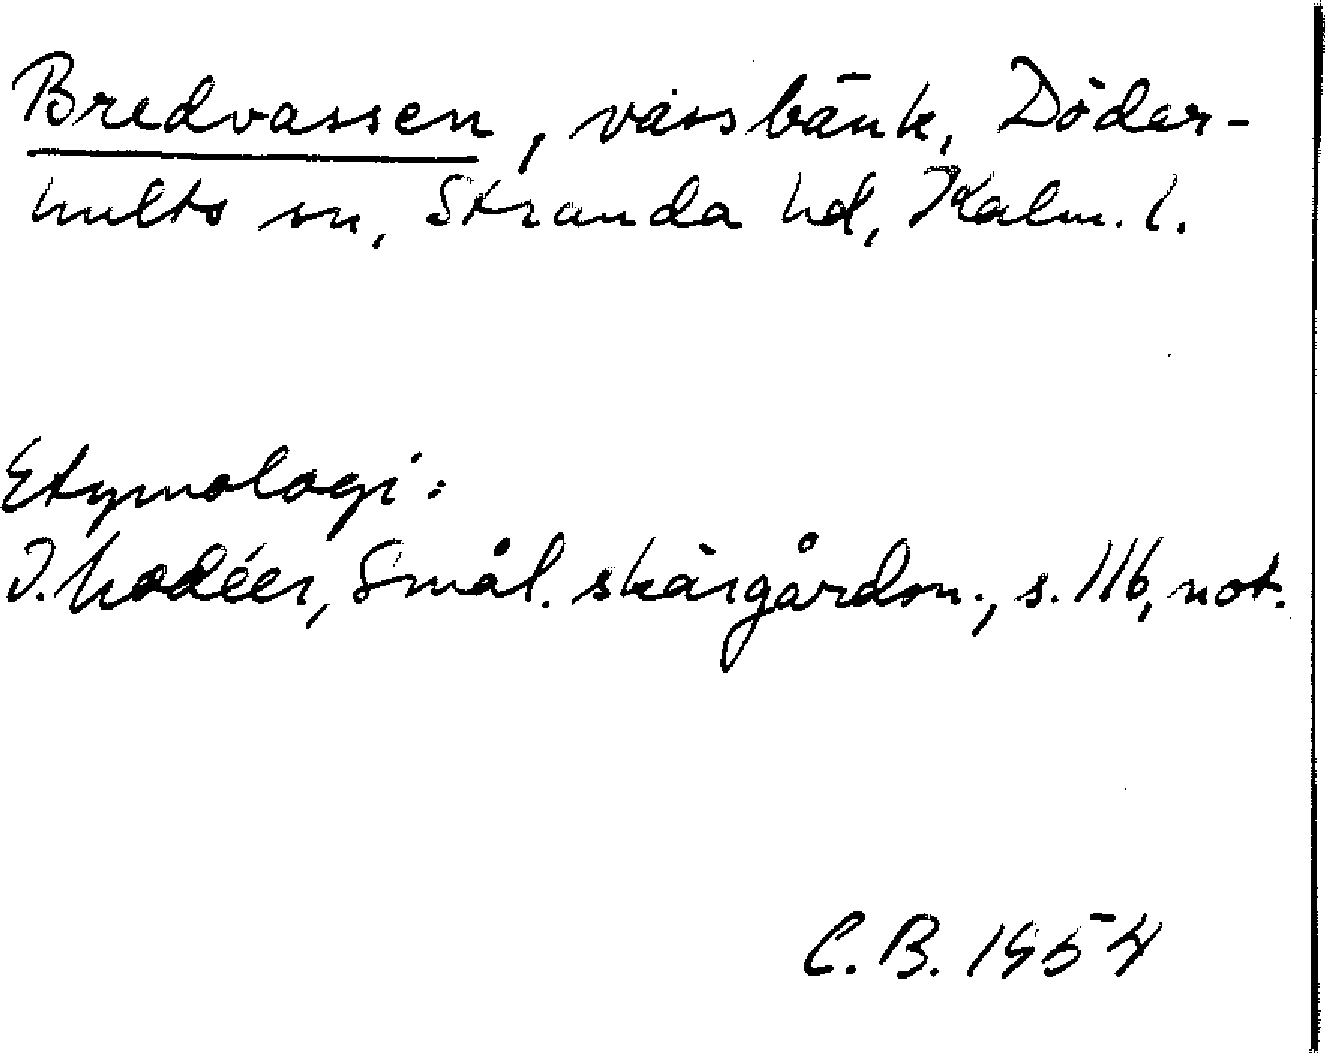 Bredvassen, vassbänk, Döder-
hults sn, Stranda hd, Kalm. l.
Etymologi:
I. Modéer, Smål. skärgårdsn., s. 116, not.
C. B. 1954